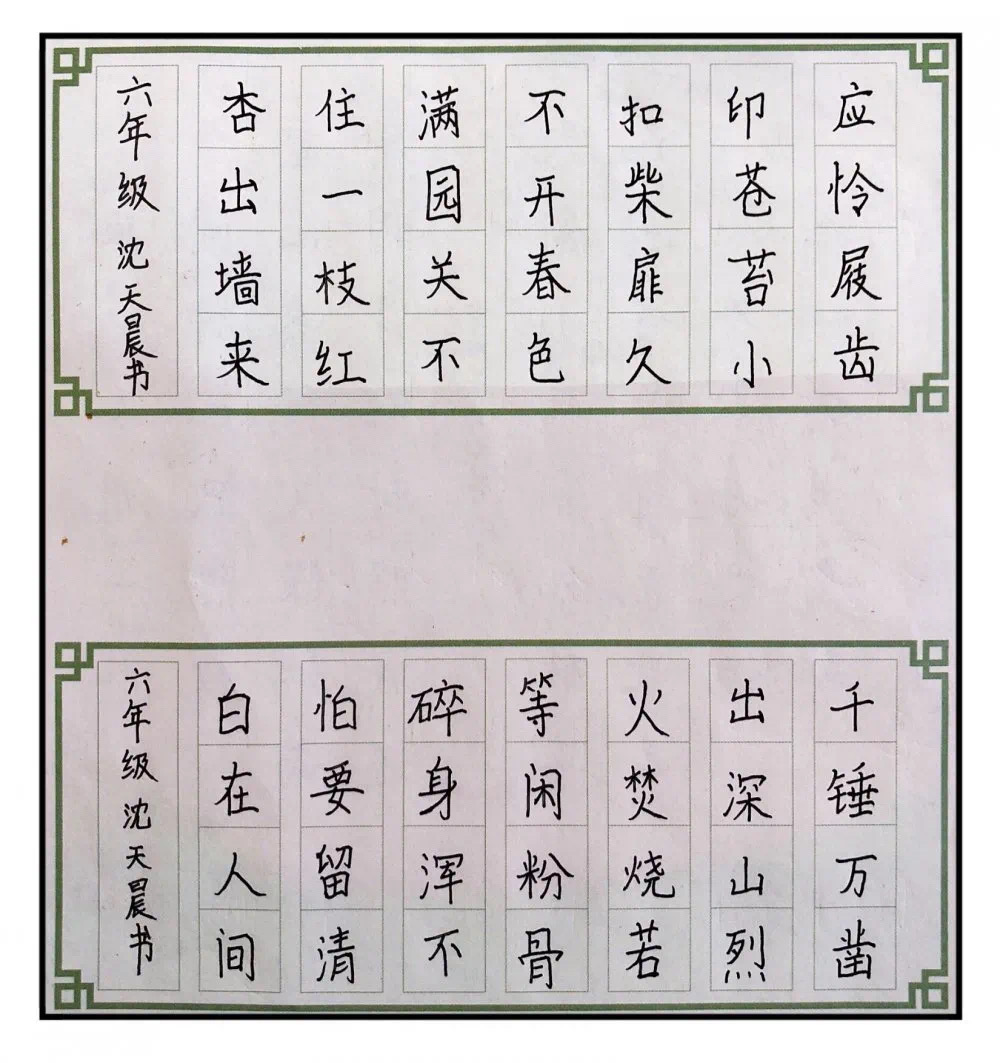 应怜屐齿
印苍苔小
扣柴扉久
不开春色
满园关不
住一枝红
杏出墙来
六年级 沈天晨书
千锤万凿
出深山烈
火焚烧若
等闲粉骨
碎身浑不
怕要留清
白在人间
六年级 沈天晨书